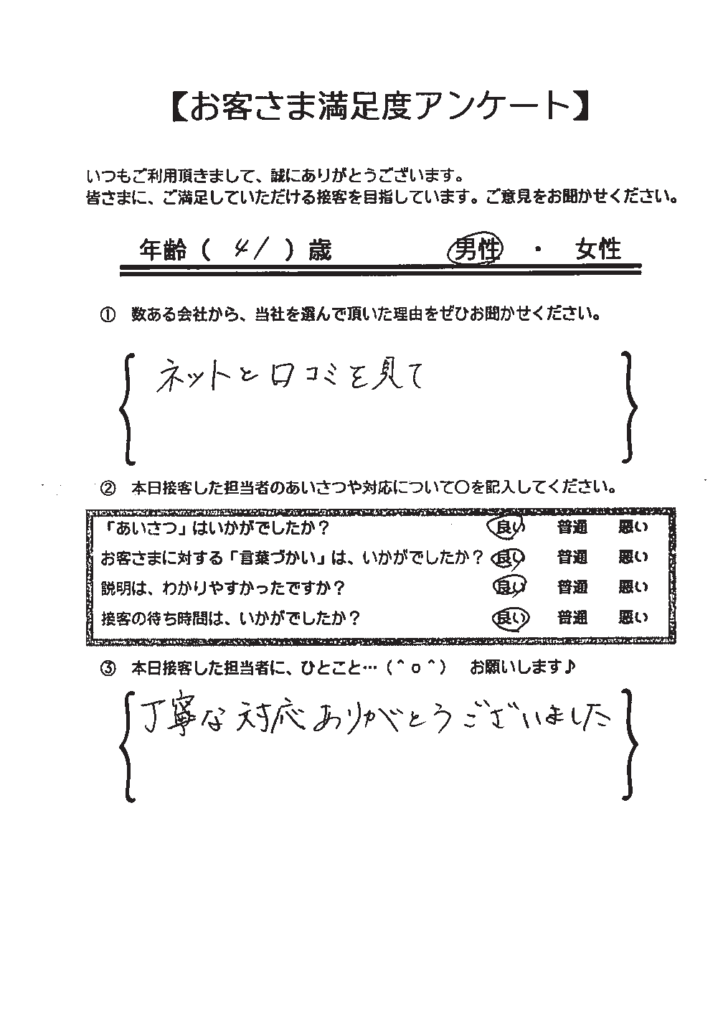 【お客さま満足度アンケート】
いつもご利用頂きまして、誠にありがとうございます。
皆さまに、ご満足していただける接客を目指しています。ご意見をお聞かせください。
年齢（ 41 ）歳　男性 ・ 女性
① 数ある会社から、当社を選んで頂いた理由をぜひお聞かせください。
ネットと口コミを見て
② 本日接客した担当者のあいさつや対応について〇を記入してください。
「あいさつ」はいかがでしたか？　良い　普通　悪い
お客さまに対する「言葉づかい」は、いかがでしたか？　良い　普通　悪い
説明は、わかりやすかったですか？　良い　普通　悪い
接客の待ち時間は、いかがでしたか？　良い　普通　悪い
③ 本日接客した担当者に、ひとこと…（＾ｏ＾）　お願いします♪
丁寧な対応ありがとうございました